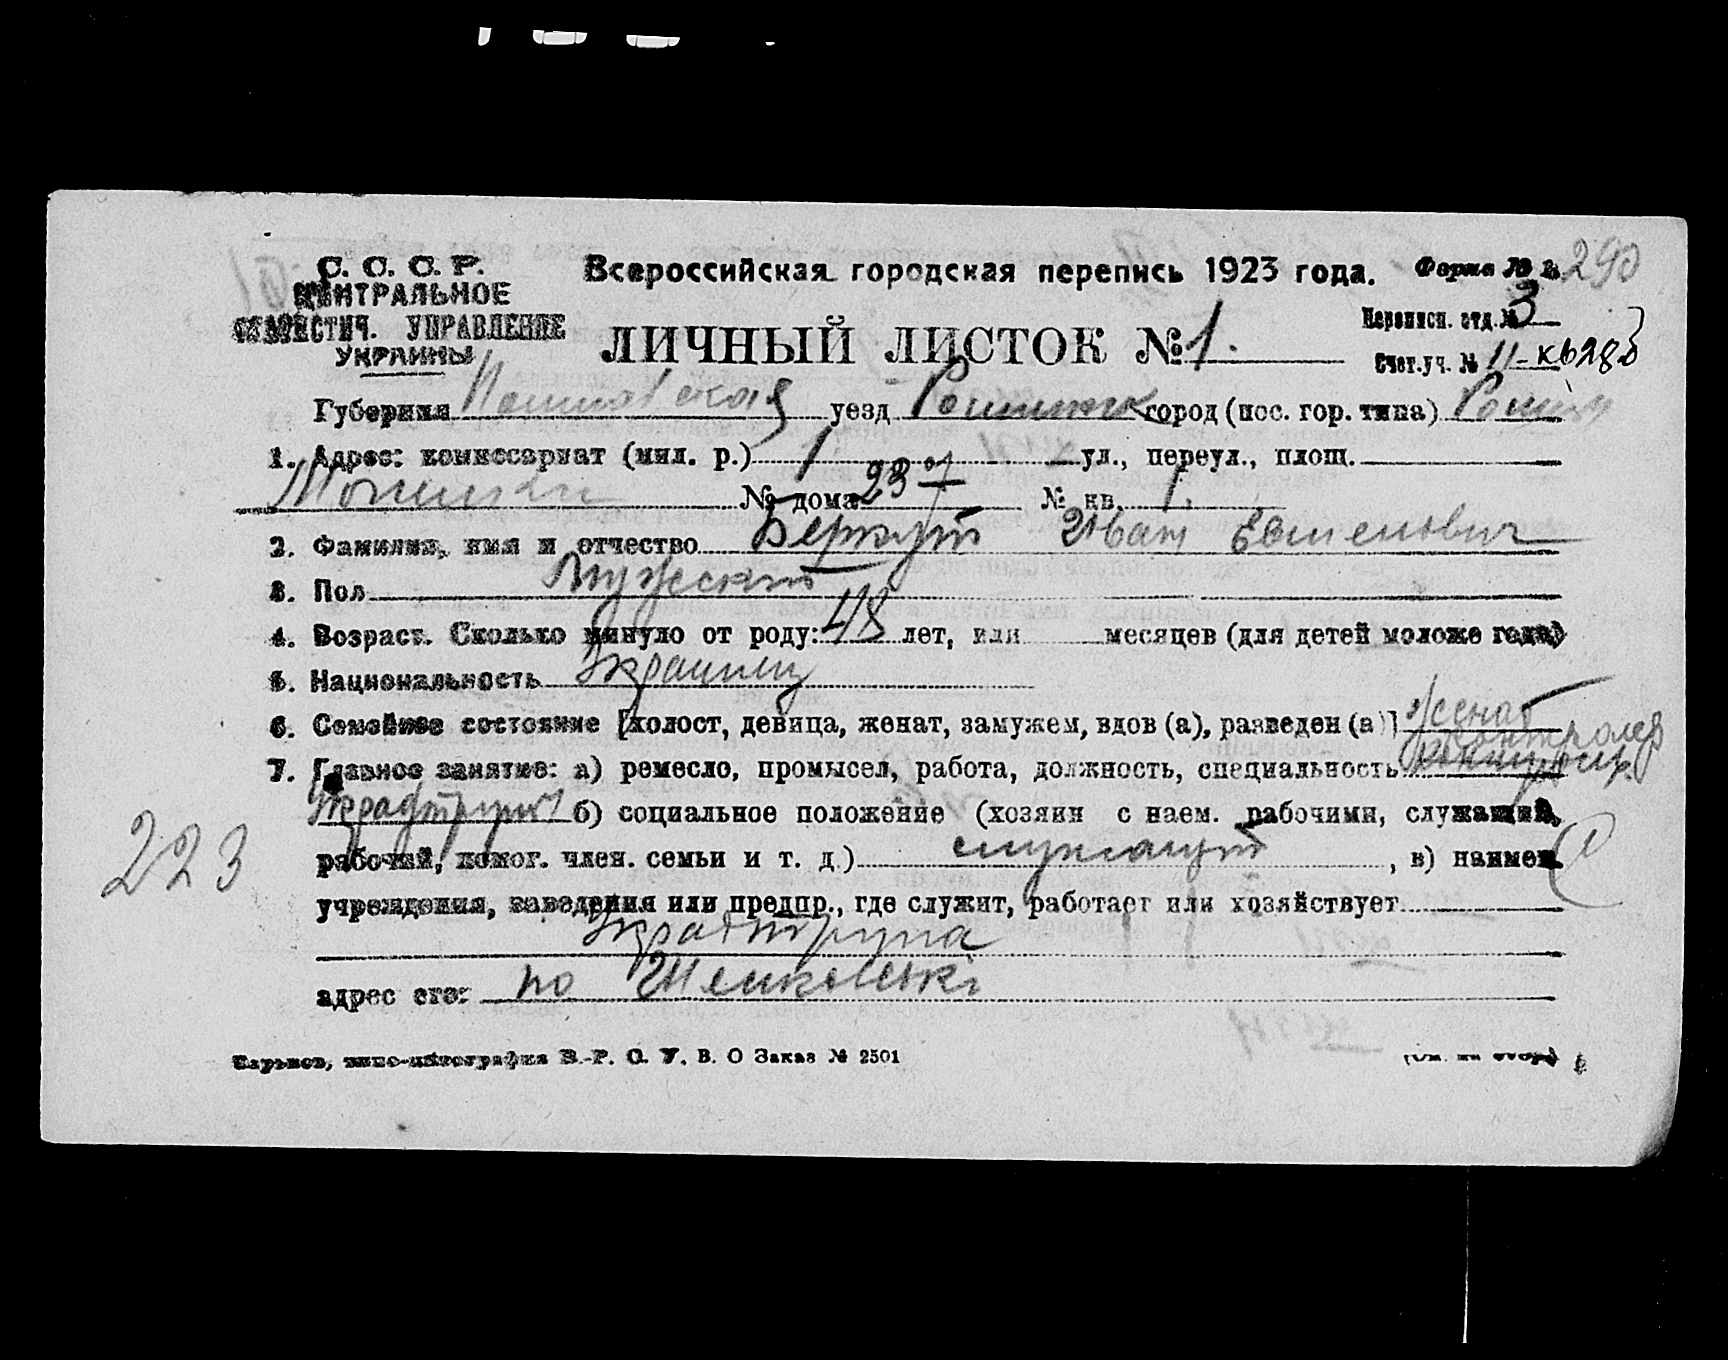 290
С. С. С. Р.
ЦЕНТРАЛЬНОЕ
СТАТИСТИЧ. УПРАВЛЕНИЕ
УКРАИНЫ
Всероссийская городская перепись 1923 года.
Форма № 2.
ЛИЧНЫЙ ЛИСТОК № 1.
Переписн. отд. № 3
Счет. уч. № 11
Губерния Полтавская уезд город (пос. гор. типа)
1. Адрес: комиссариат (мил. р.) 1 ул., переул., площ.
№ дома 23 № кв. 1.
2. Фамилия, имя и отчество Беркут Иван
3. Пол Мужской
4. Возраст. Сколько минуло от роду: 48 лет, или месяцев (для детей моложе года)
5. Национальность Украинец
6. Семейное состояние [холост, девица, женат, замужем, вдов (а), разведен (а)] женат
7. Главное занятие: а) ремесло, промысел, работа, должность, специальность
б) социальное положение (хозяин с наем. рабочими, служащий,
223
рабочий, помог. член. семьи и т. д.) служащий, в) наимен.
учреждения, заведения или предпр., где служит, работает или хозяйствует
адрес его: по
Харьков, типо-литография В.-Р. О. У. В. О Заказ № 2501
(См. на обор.)